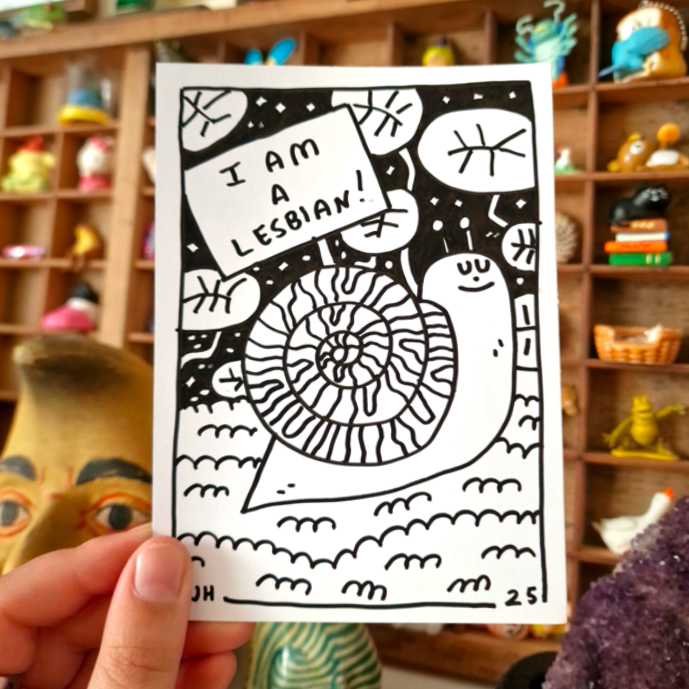 I AM
A
LESBIAN!
JH 25